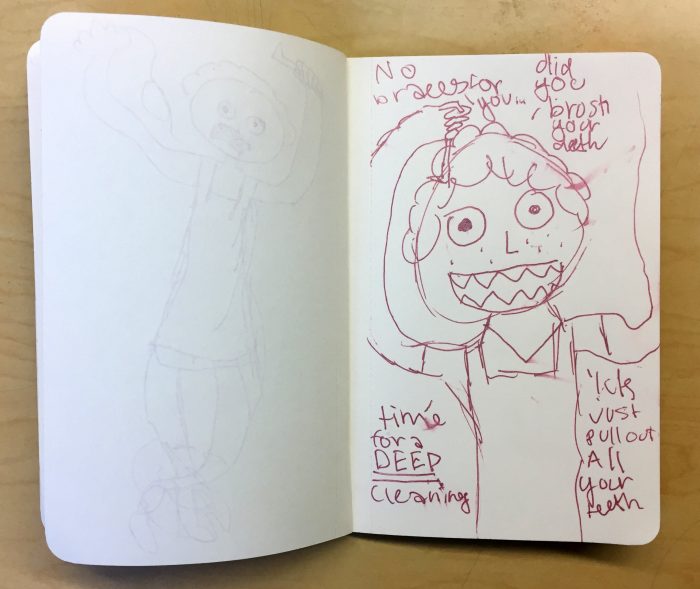 No
braces for
you
did
you
brush
your
teeth
time
for a
DEEP
cleaning
just
pull out
All
your
teeth